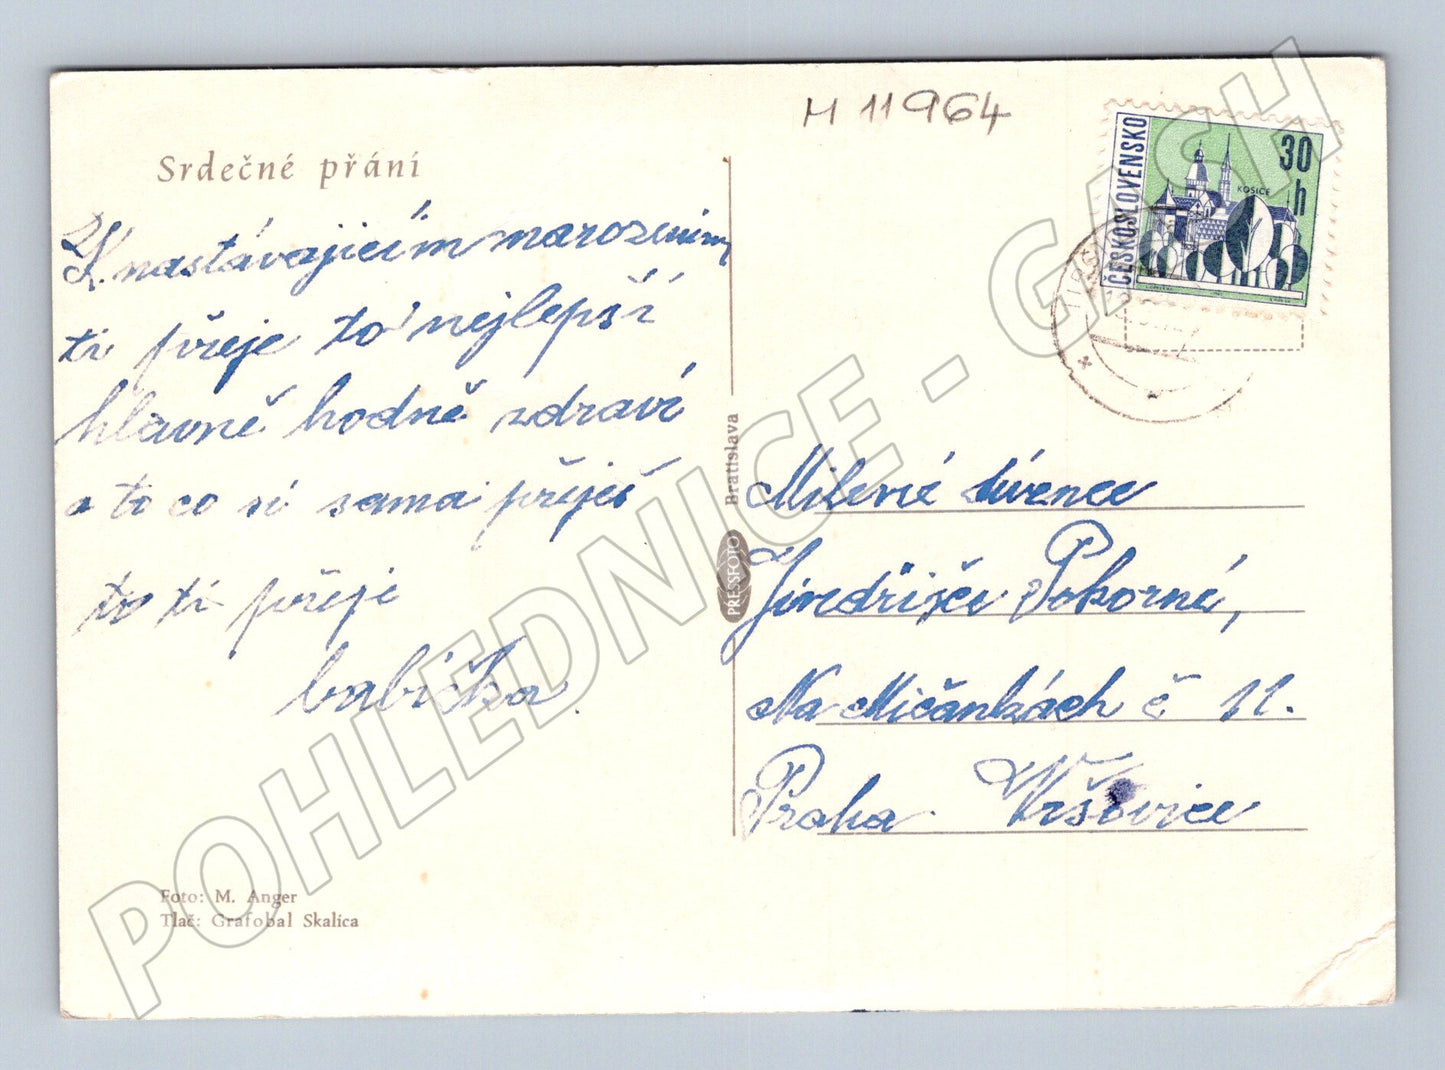 H 11964
ČESKOSLOVENSKO
30 h
KOŠICE
Srdečné přání
K nastávajícím narozeninm
ti přeje to nejlepší
hlavně hodně zdraví
a to co si sama přeješ
to ti přeje
babička.
Bratislava
PRESSFOTO
Milerié
Jindřišce Pokorné,
Na Mičánkách č 11.
Praha Vršovice
Foto: M. Anger
Tlač: Grafobal Skalica
POHLEDNICE - GASH